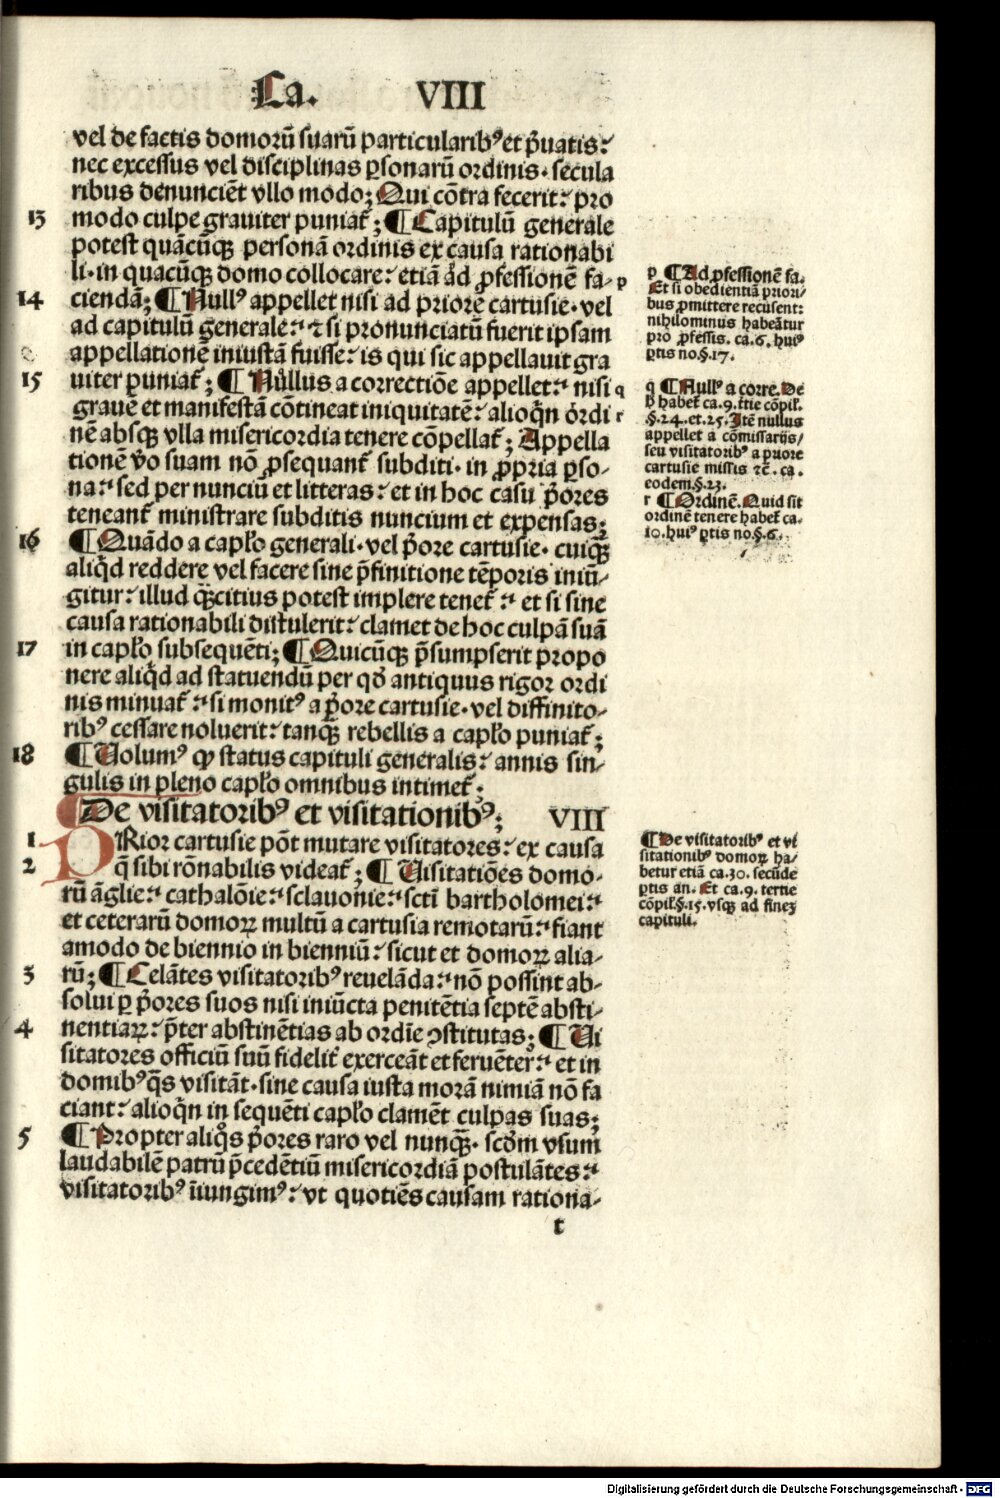 Ca. VIII
vel de factis domorū suarū particularibꝰ et p̄uatis:
nec excessus vel disciplinas ꝑsonarū ordinis · secula
ribus denunciēt vllo modo; Qui cōtra fecerit: pro
13 modo culpe grauiter puniat᷑; ¶ Capitulū generale
potest quācūqꝫ personā ordinis ex causa rationabi
li · in quacūqꝫ domo collocare: etiā ad ꝓfessionē fa- p
14 ciendā; ¶ Nullꝰ appellet nisi ad priorē cartusie · vel
ad capitulū generale: ⁊ si pronunciatū fuerit ipsam
appellationē iniustā fuisse: is qui sic appellauit gra
15 uiter puniat᷑; ¶ Nullus a correctiōe appellet: nisi q
grauē et manifestā cōtineat iniquitatē: alioq̄n ordi r
nē absqꝫ vlla misericordia tenere cōpellat᷑; Appella
tionē v̄o suam nō ꝓsequant᷑ subditi · in ꝓpria ꝑso-
na: sed per nunciū et litteras: et in hoc casu p̄ores
teneant᷑ ministrare subditis nuncium et expensas;
16 ¶ Quādo a capl̄o generali · vel p̄ore cartusie · cuiqꝫ
aliq̄d reddere vel facere sine p̄finitione tēporis iniū-
gitur: illud q̄ꝫcitius potest implere tenet᷑: et si sine
causa rationabili distulerit: clamet de hoc culpā suā
17 in capl̄o subsequēti; ¶ Quicūqꝫ p̄sumpserit propo
nere aliq̄d ad statuendū per qd̄ antiquus rigor ordi
nis minuat᷑: si monitꝰ a p̄ore cartusie · vel diffinito-
ribꝰ cessare noluerit: tanq̄ꝫ rebellis a capl̄o puniat᷑;
18 ¶ Uolumꝰ ꝙ status capituli generalis: annis sin-
gulis in pleno capl̄o omnibus intimet᷑;
¶ De visitatoribꝰ et visitationibꝰ; VIII
1 PRior cartusie pōt mutare visitatores: ex causa
2 q̄ sibi rōnabilis videat᷑; ¶ Uisitatiōes domo-
rū āglie: cathalōie: sclauonie: sctī bartholomei:
et ceterarū domoꝝ multū a cartusia remotarū: fiant
amodo de biennio in bienniū: sicut et domoꝝ alia-
3 rū; ¶ Celātes visitatoribꝰ reuelāda: nō possint ab-
solui ꝑ p̄ores suos nisi iniūcta penitētia septē absti-
4 nentiaꝝ: p̄ter abstinētias ab ordīe ꝯstitutas; ¶ Ui
sitatores officiū suū fidelit᷑ exerceāt et feruēter: et in
domibꝰ q̄s visitāt · sine causa iusta morā nimiā nō fa
ciant: alioq̄n in sequēti capl̄o clamēt culpas suas;
5 ¶ Propter aliq̊s p̄ores raro vel nunq̄ꝫ · scd̄m vsum
laudabilē patrū p̄cedētiū misericordiā postulātes:
visitatoribꝰ iīungimꝰ: vt quotiēs causam rationa-
t
p ¶ Ad ꝓfessionē fa.
Et si obedientiā priori-
bus ꝓmittere recusent:
nihilominus habeātur
pro ꝓfessis. ca. 6. huiꝰ
ꝑtis no. §. 17.
q ¶ Nullꝰ a corre. De
h̄ habet᷑ ca. 9. t̄tie cōpil.
§. 24. et. 25. Itē nullus
appellet a cōmissarijs/
seu visitatoribꝰ a priore
cartusie missis ⁊c̄. ca.
eodem. §. 23.
r ¶ Ordinē. Quid sit
ordinē tenere habet᷑ ca.
10. huiꝰ ꝑtis no. §. 6.
¶ De visitatoribꝰ et vi
sitationibꝰ domoꝝ ha-
betur etiā ca. 30. secūde
ꝑtis an. Et ca. 9. tertie
cōpil. §. 15. vsqꝫ ad finē
capituli.
Digitalisierung gefördert durch die Deutsche Forschungsgemeinschaft - DFG